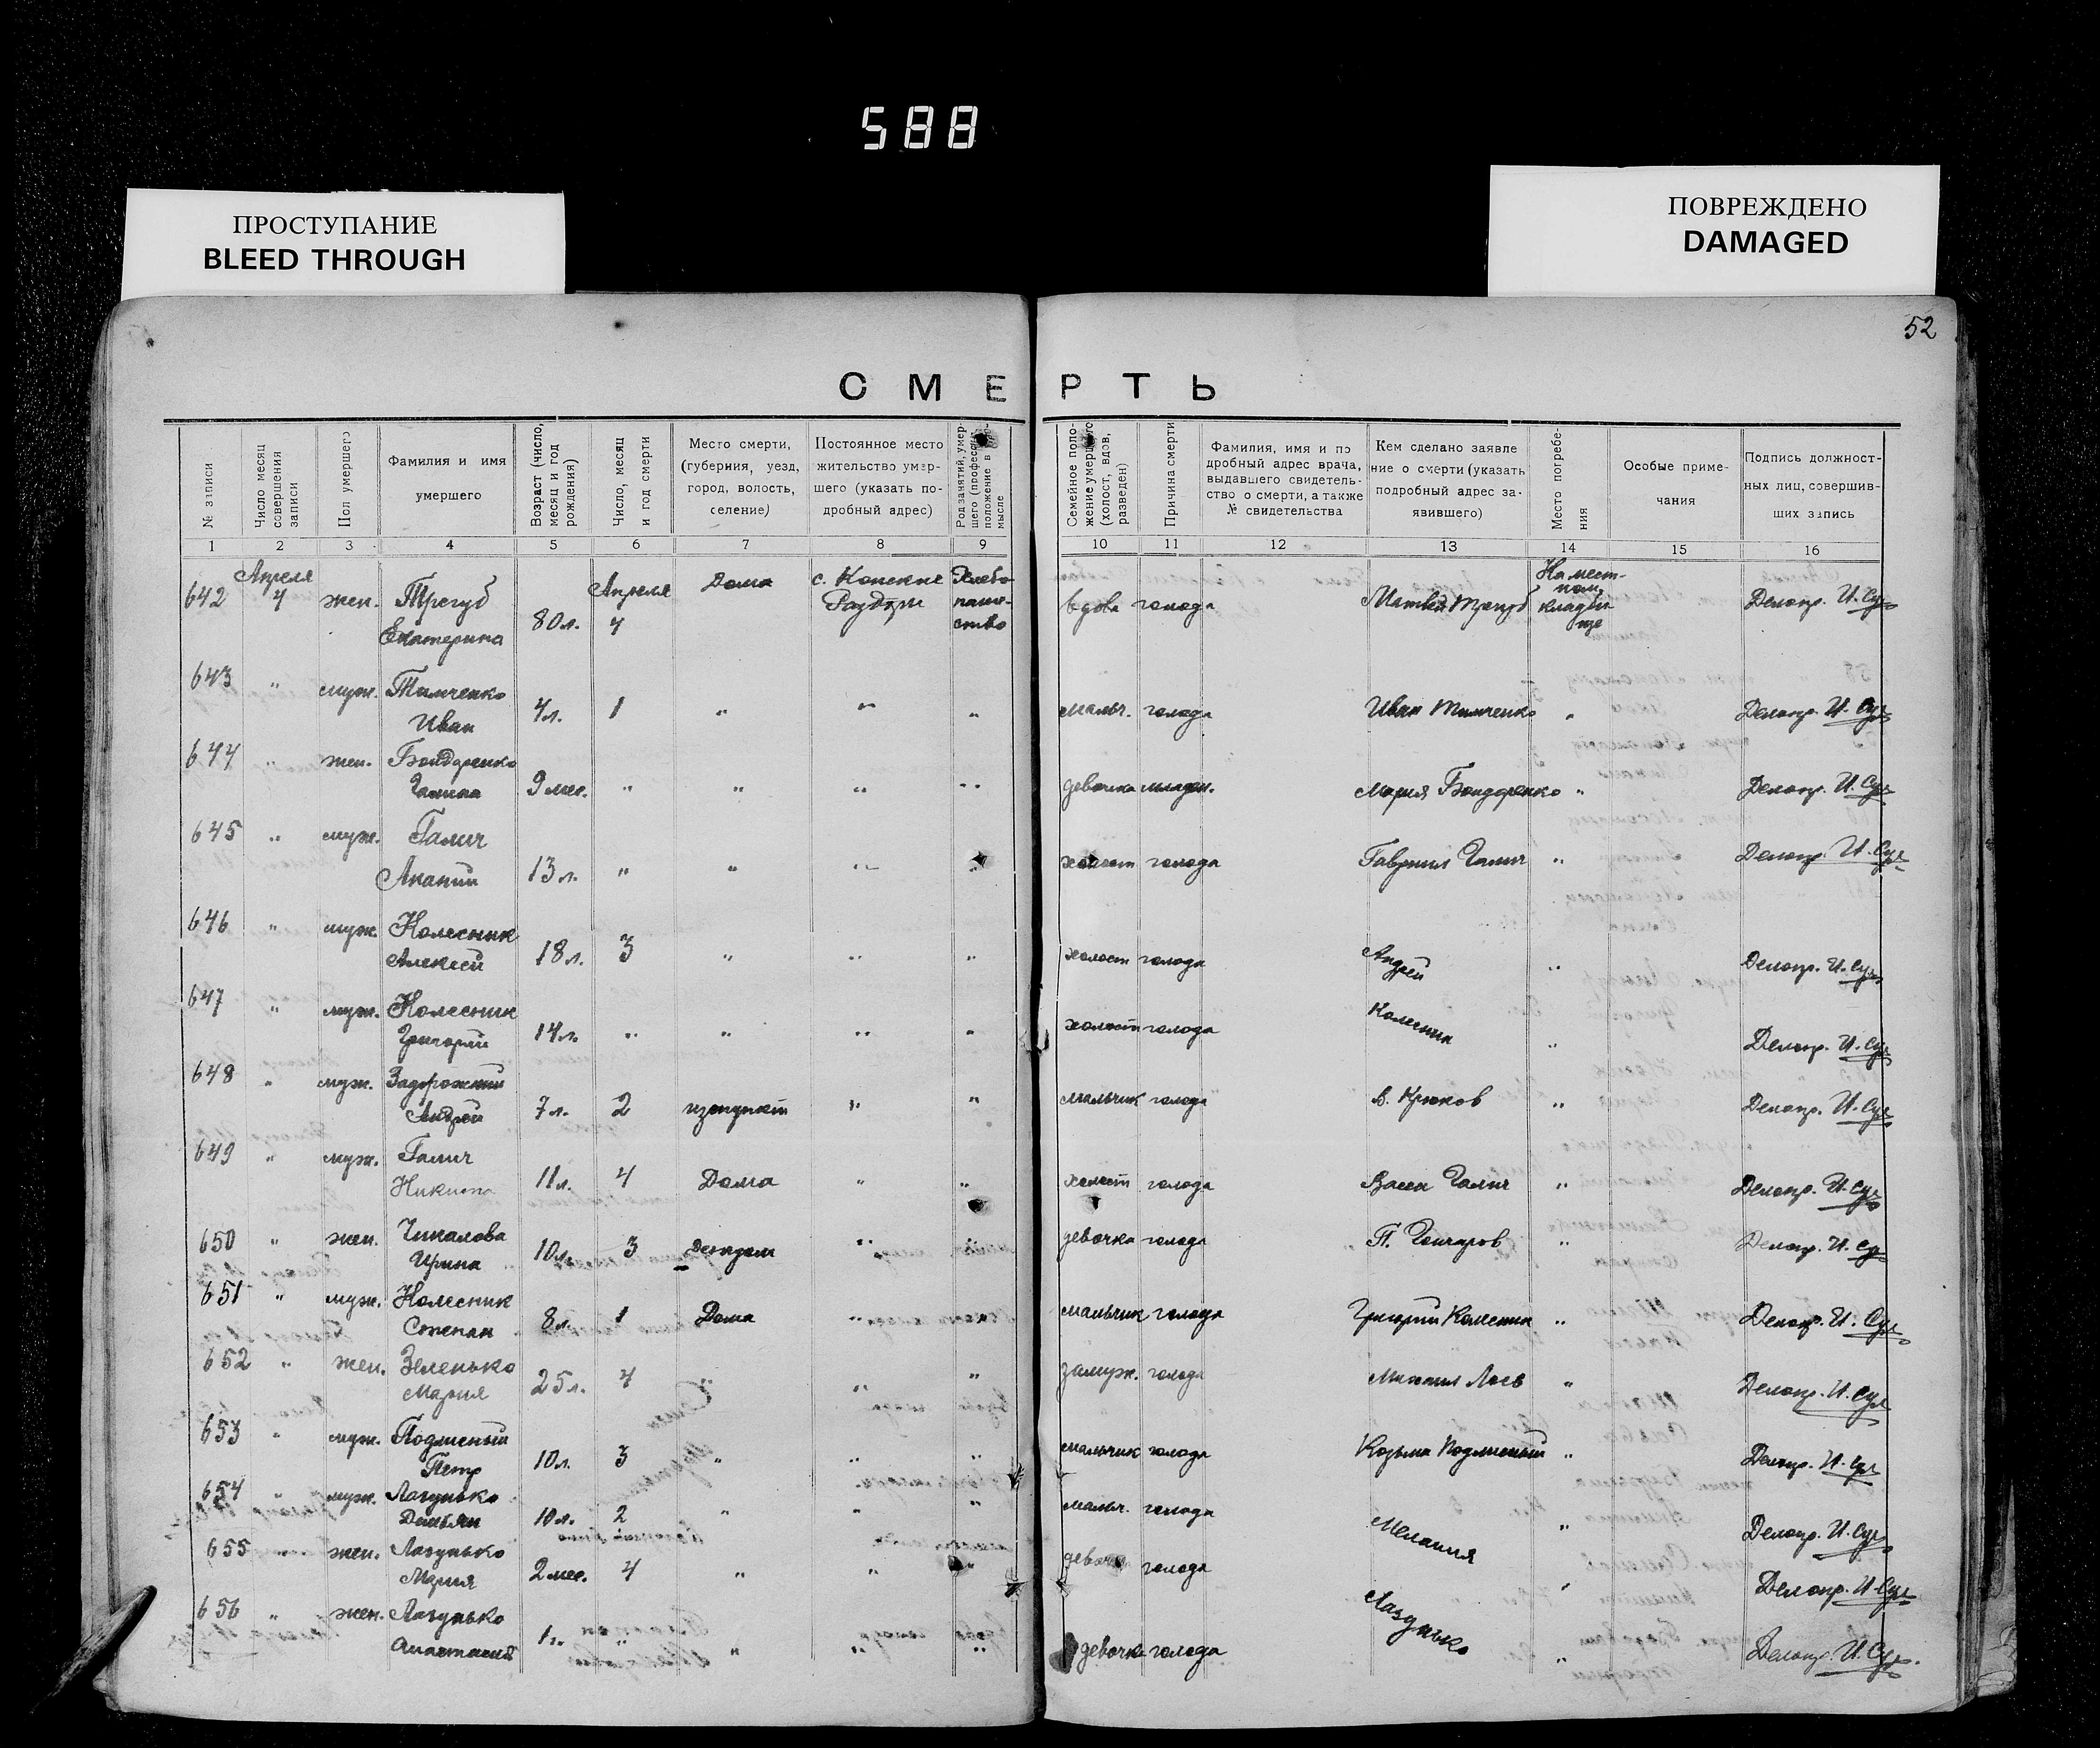 588
ПРОСТУПАНИЕ
BLEED THROUGH
ПОВРЕЖДЕНО
DAMAGED
52
СМЕРТЬ
№ записи
Число месяц совершения записи
Пол умершего
Фамилия и имя умершего
Возраст (число, месяц и год рождения)
Число, месяц и год смерти
Место смерти, (губерния, уезд, город, волость, селение)
Постоянное место жительство умершего (указать подробный адрес)
Род занятий, умершего (професс положение в мысле
Семейное положение умершего (холост, вдов, разведен)
Причина смерти
Фамилия, имя и подробный адрес врача, выдавшего свидетельство о смерти, а также № свидетельства
Кем сделано заявление о смерти (указать подробный адрес заявившего)
Место погребения
Особые примечания
Подпись должностных лиц, совершивших запись
1 2 3 4 5 6 7 8 9 10 11 12 13 14 15 16
642 Апреля 4 жен. Трегуб Екатерина 80 л. Апреля 4 Дома с. Конские Раздоры Хлебопашество вдова голода Матвей Трегуб На местном кладбище Делопр. И. Сул
643 " муж. Тимченко Иван 4 л. 1 " " " мальч. голода Иван Тимченко " Делопр. И. Сул
644 " жен. Бондаренко Галина 9 мес. " " " " девочка младен. Мария Бондаренко " Делопр. И. Сул
645 " муж. Галич Ананий 13 л. " " " " холост голода Гавриил Галич " Делопр. И. Сул
646 " муж. Колесник Алексей 18 л. 3 " " " холост голода Андрей " Делопр. И. Сул
647 " муж. Колесник Григорий 14 л. " " " " холост голода Колесник " Делопр. И. Сул
648 " муж. Задорожний Андрей 7 л. 2 " " мальчик голода В. Крюков " Делопр. И. Сул
649 " муж. Галич Никита 11 л. 4 Дома " " холост голода Васса Галич " Делопр. И. Сул
650 " жен. Чикалова Ирина 10 л. 3 Детдом " " девочка голода П. Гончаров " Делопр. И. Сул
651 " муж. Колесник Степан 8 л. 1 Дома " " мальчик голода Григорий Колесник " Делопр. И. Сул
652 " жен. Зеленько Мария 25 л. 4 " " " замуж. голода Михаил Лоев " Делопр. И. Сул
653 " муж. Подлесный Петр 10 л. 3 " " " мальчик голода Козьма Подлесный " Делопр. И. Сул
654 " муж. Лазунько Демьян 10 л. 2 " " " мальч. голода Мелания " Делопр. И. Сул
655 " жен. Лазунько Мария 2 мес. 4 " " " девочка голода " Делопр. И. Сул
656 " жен. Лазунько Анастасия 1 г. " " " " девочка голода Лазунько " Делопр. И. Сул